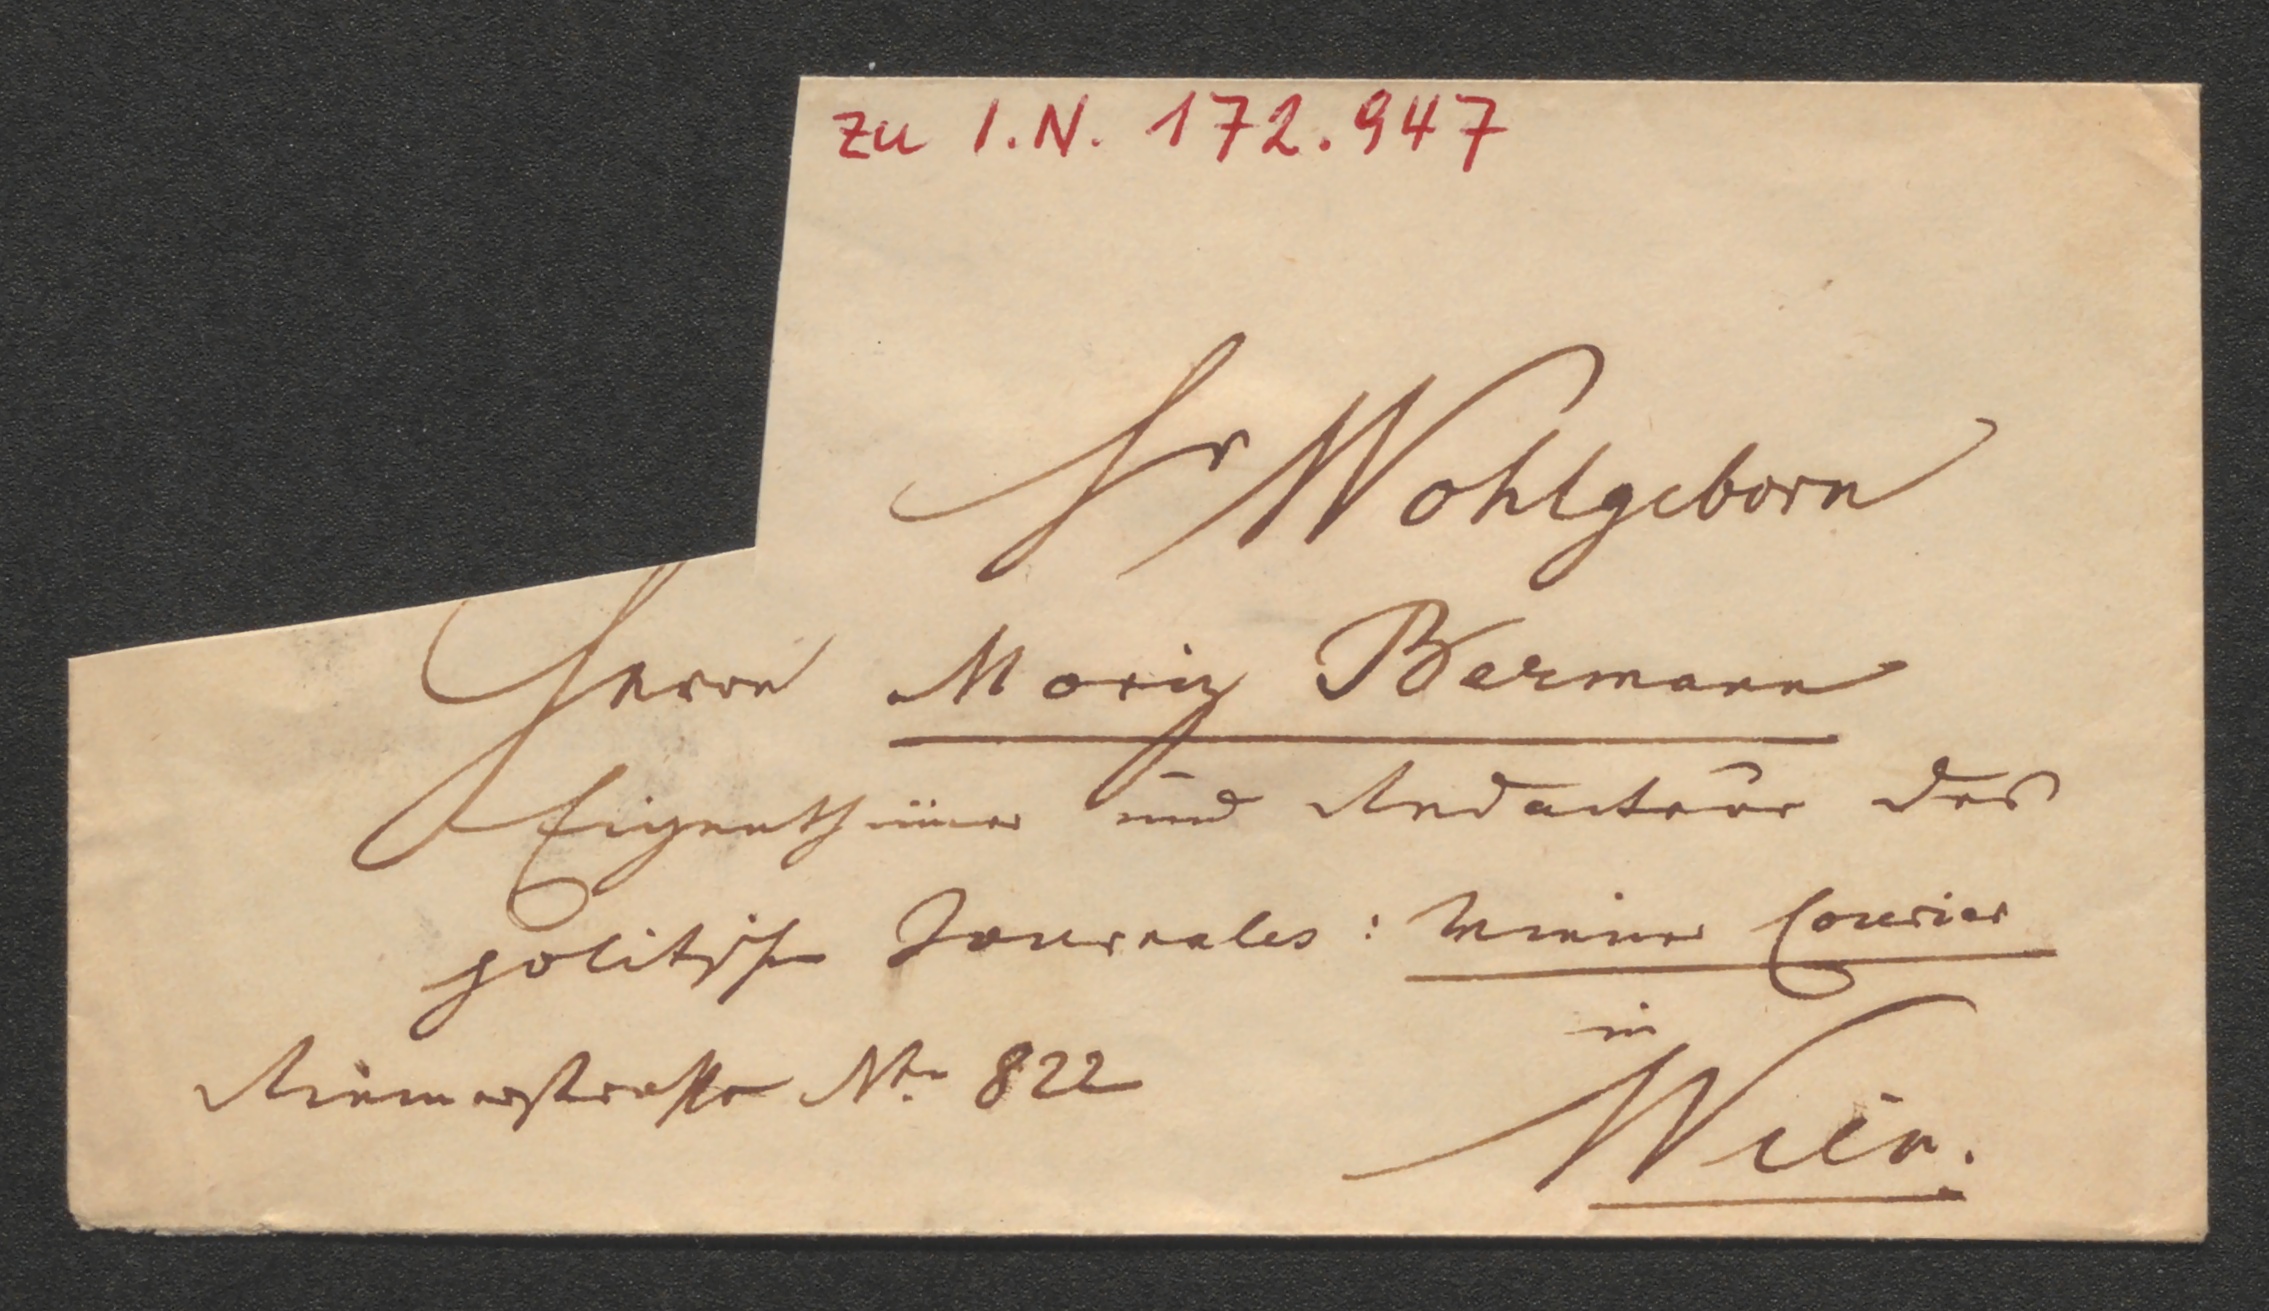 zu I.N. 172.947
Sr Wohlgeborn
Herrn Moriz Bermann
Eigenthümer und Redacteur des
politisch Journales: Wiener Courier
in
Riemerstrasse Nr. 822
Wien.